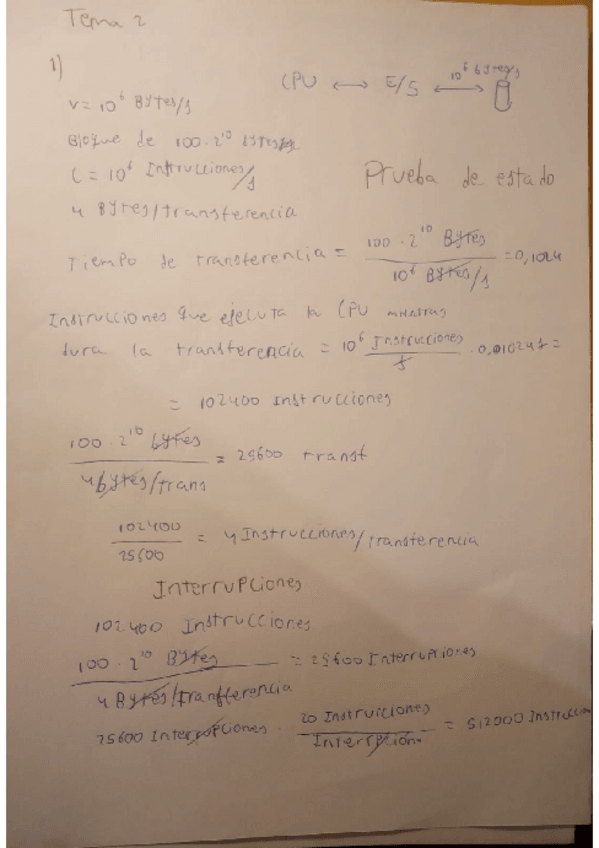 Tema 2
1)
CPU ↔ E/S ↔ 10^6 bytes/s
V = 10^6 Bytes/s
Bloque de 100 · 2^10 bytes
C = 10^6 Instrucciones/s
Prueba de estado
4 Bytes/transferencia
Tiempo de transferencia = 100 · 2^10 Bytes / 10^6 Bytes/s = 0,1024
Instrucciones que ejecuta la CPU mientras
dura la transferencia = 10^6 Instrucciones/s · 0,01024s =
= 102400 Instrucciones
100 · 2^10 bytes / 4 bytes/trans = 25600 transf
102400 / 25600 = 4 Instrucciones/transferencia
Interrupciones
102400 Instrucciones
100 · 2^10 Bytes / 4 Bytes/transferencia = 25600 Interrupciones
25600 Interrupciones · 20 Instrucciones / Interrpción = 512000 Instruccion